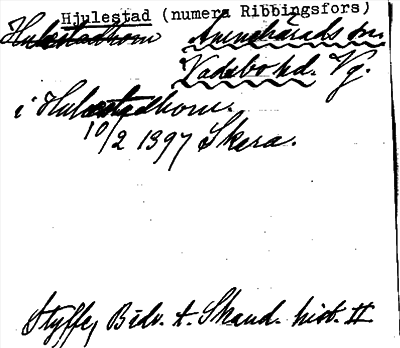 Hjulestad (numera Ribbingsfors)
Hulestadhom Amnehärads sn.
Vadsbo hd. Vg.
i Hulestadhom.
10/2 1397 Skera.
Styffe, Bidr. t. Skand. hist. II